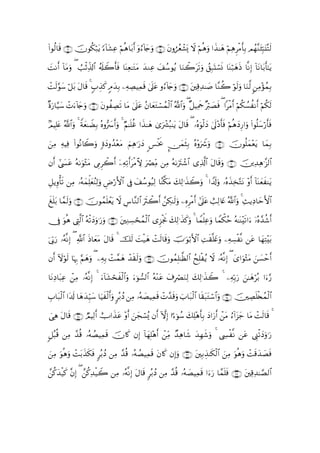 لَتُنَبِّئَنَّهُم بِأَمْرِهِمْ هَٰذَا وَهُمْ لَا يَشْعُرُونَ ۝ وَجَآءُوٓ أَبَاهُمْ عِشَآءً يَبْكُونَ ۝ قَالُوا۟
يَٰٓأَبَانَآ إِنَّا ذَهَبْنَا نَسْتَبِقُ وَتَرَكْنَا يُوسُفَ عِندَ مَتَٰعِنَا فَأَكَلَهُ ٱلذِّئْبُ ۖ وَمَآ أَنتَ
بِمُؤْمِنٍ لَّنَا وَلَوْ كُنَّا صَٰدِقِينَ ۝ وَجَآءُو عَلَىٰ قَمِيصِهِۦ بِدَمٍ كَذِبٍ ۚ قَالَ بَلْ سَوَّلَتْ
لَكُمْ أَنفُسُكُمْ أَمْرًا ۖ فَصَبْرٌ جَمِيلٌ ۖ وَٱللَّهُ ٱلْمُسْتَعَانُ عَلَىٰ مَا تَصِفُونَ ۝ وَجَآءَتْ سَيَّارَةٌ
فَأَرْسَلُوا۟ وَارِدَهُمْ فَأَدْلَىٰ دَلْوَهُۥ ۖ قَالَ يَٰبُشْرَىٰ هَٰذَا غُلَٰمٌ ۚ وَأَسَرُّوهُ بِضَٰعَةً ۚ وَٱللَّهُ عَلِيمٌۢ
بِمَا يَعْمَلُونَ ۝ وَشَرَوْهُ بِثَمَنٍۭ بَخْسٍ دَرَٰهِمَ مَعْدُودَةٍ وَكَانُوا۟ فِيهِ مِنَ
ٱلزَّٰهِدِينَ ۝ وَقَالَ ٱلَّذِى ٱشْتَرَىٰهُ مِن مِّصْرَ لِٱمْرَأَتِهِۦٓ أَكْرِمِى مَثْوَىٰهُ عَسَىٰٓ أَن
يَنفَعَنَآ أَوْ نَتَّخِذَهُۥ وَلَدًا ۚ وَكَذَٰلِكَ مَكَّنَّا لِيُوسُفَ فِى ٱلْأَرْضِ وَلِنُعَلِّمَهُۥ مِن تَأْوِيلِ
ٱلْأَحَادِيثِ ۚ وَٱللَّهُ غَالِبٌ عَلَىٰٓ أَمْرِهِۦ وَلَٰكِنَّ أَكْثَرَ ٱلنَّاسِ لَا يَعْلَمُونَ ۝ وَلَمَّا بَلَغَ
أَشُدَّهُۥٓ ءَاتَيْنَٰهُ حُكْمًا وَعِلْمًا ۚ وَكَذَٰلِكَ نَجْزِى ٱلْمُحْسِنِينَ ۝ وَرَٰوَدَتْهُ ٱلَّتِى هُوَ فِى
بَيْتِهَا عَن نَّفْسِهِۦ وَغَلَّقَتِ ٱلْأَبْوَٰبَ وَقَالَتْ هَيْتَ لَكَ ۚ قَالَ مَعَاذَ ٱللَّهِ ۖ إِنَّهُۥ رَبِّىٓ
أَحْسَنَ مَثْوَاىَ ۖ إِنَّهُۥ لَا يُفْلِحُ ٱلظَّٰلِمُونَ ۝ وَلَقَدْ هَمَّتْ بِهِۦ ۖ وَهَمَّ بِهَا لَوْلَآ أَن
رَّءَا بُرْهَٰنَ رَبِّهِۦ ۚ كَذَٰلِكَ لِنَصْرِفَ عَنْهُ ٱلسُّوٓءَ وَٱلْفَحْشَآءَ ۚ إِنَّهُۥ مِنْ عِبَادِنَا
ٱلْمُخْلَصِينَ ۝ وَٱسْتَبَقَا ٱلْبَابَ وَقَدَّتْ قَمِيصَهُۥ مِن دُبُرٍ وَأَلْفَيَا سَيِّدَهَا لَدَا ٱلْبَابِ ۚ
قَالَتْ مَا جَزَآءُ مَنْ أَرَادَ بِأَهْلِكَ سُوٓءًا إِلَّآ أَن يُسْجَنَ أَوْ عَذَابٌ أَلِيمٌ ۝ قَالَ هِىَ
رَٰوَدَتْنِى عَن نَّفْسِى ۚ وَشَهِدَ شَاهِدٌ مِّنْ أَهْلِهَآ إِن كَانَ قَمِيصُهُۥ قُدَّ مِن قُبُلٍ
فَصَدَقَتْ وَهُوَ مِنَ ٱلْكَٰذِبِينَ ۝ وَإِن كَانَ قَمِيصُهُۥ قُدَّ مِن دُبُرٍ فَكَذَبَتْ وَهُوَ مِنَ
ٱلصَّٰدِقِينَ ۝ فَلَمَّا رَءَا قَمِيصَهُۥ قُدَّ مِن دُبُرٍ قَالَ إِنَّهُۥ مِن كَيْدِكُنَّ ۖ إِنَّ كَيْدَكُنَّ